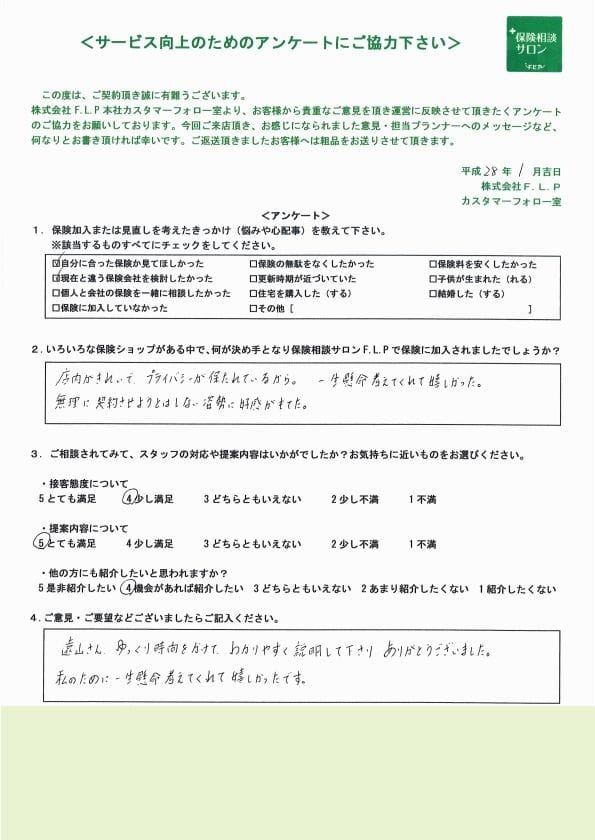 ＜サービス向上のためのアンケートにご協力下さい＞
+保険相談
サロン
F.L.P
この度は、ご契約頂き誠に有難うございます。
株式会社F.L.P本社カスタマーフォロー室より、お客様から貴重なご意見を頂き運営に反映させて頂きたくアンケート
のご協力をお願いしております。今回ご来店頂き、お感じになられました意見・担当プランナーへのメッセージなど、
何なりとお書き頂ければ幸いです。ご返送頂きましたお客様へは粗品をお送りさせて頂きます。
平成 28 年 1 月吉日
株式会社F.L.P
カスタマーフォロー室
＜アンケート＞
1．保険加入または見直しを考えたきっかけ（悩みや心配事）を教えて下さい。
※該当するものすべてにチェックをしてください。
☑自分に合った保険か見てほしかった □保険の無駄をなくしたかった □保険料を安くしたかった
☑現在と違う保険会社を検討したかった □更新時期が近づいていた □子供が生まれた（れる）
□個人と会社の保険を一緒に相談したかった □住宅を購入した（する） □結婚した（する）
□保険に加入していなかった □その他［ ］
2．いろいろな保険ショップがある中で、何が決め手となり保険相談サロンF.L.Pで保険に加入されましたでしょうか？
店内がきれいで、プライバシーが保たれているから。 一生懸命考えてくれて嬉しかった。
無理に契約させようとはしない姿勢に好感がもてた。
3．ご相談されてみて、スタッフの対応や提案内容はいかがでしたか？お気持ちに近いものをお選びください。
・接客態度について
5とても満足 ④少し満足 3どちらともいえない 2少し不満 1不満
・提案内容について
⑤とても満足 4少し満足 3どちらともいえない 2少し不満 1不満
・他の方にも紹介したいと思われますか？
5是非紹介したい ④機会があれば紹介したい 3どちらともいえない 2あまり紹介したくない 1紹介したくない
4．ご意見・ご要望などございましたらご記入ください。
遠山さん、ゆっくり時間をかけて、わかりやすく説明して下さり ありがとうございました。
私のために一生懸命考えてくれて嬉しかったです。